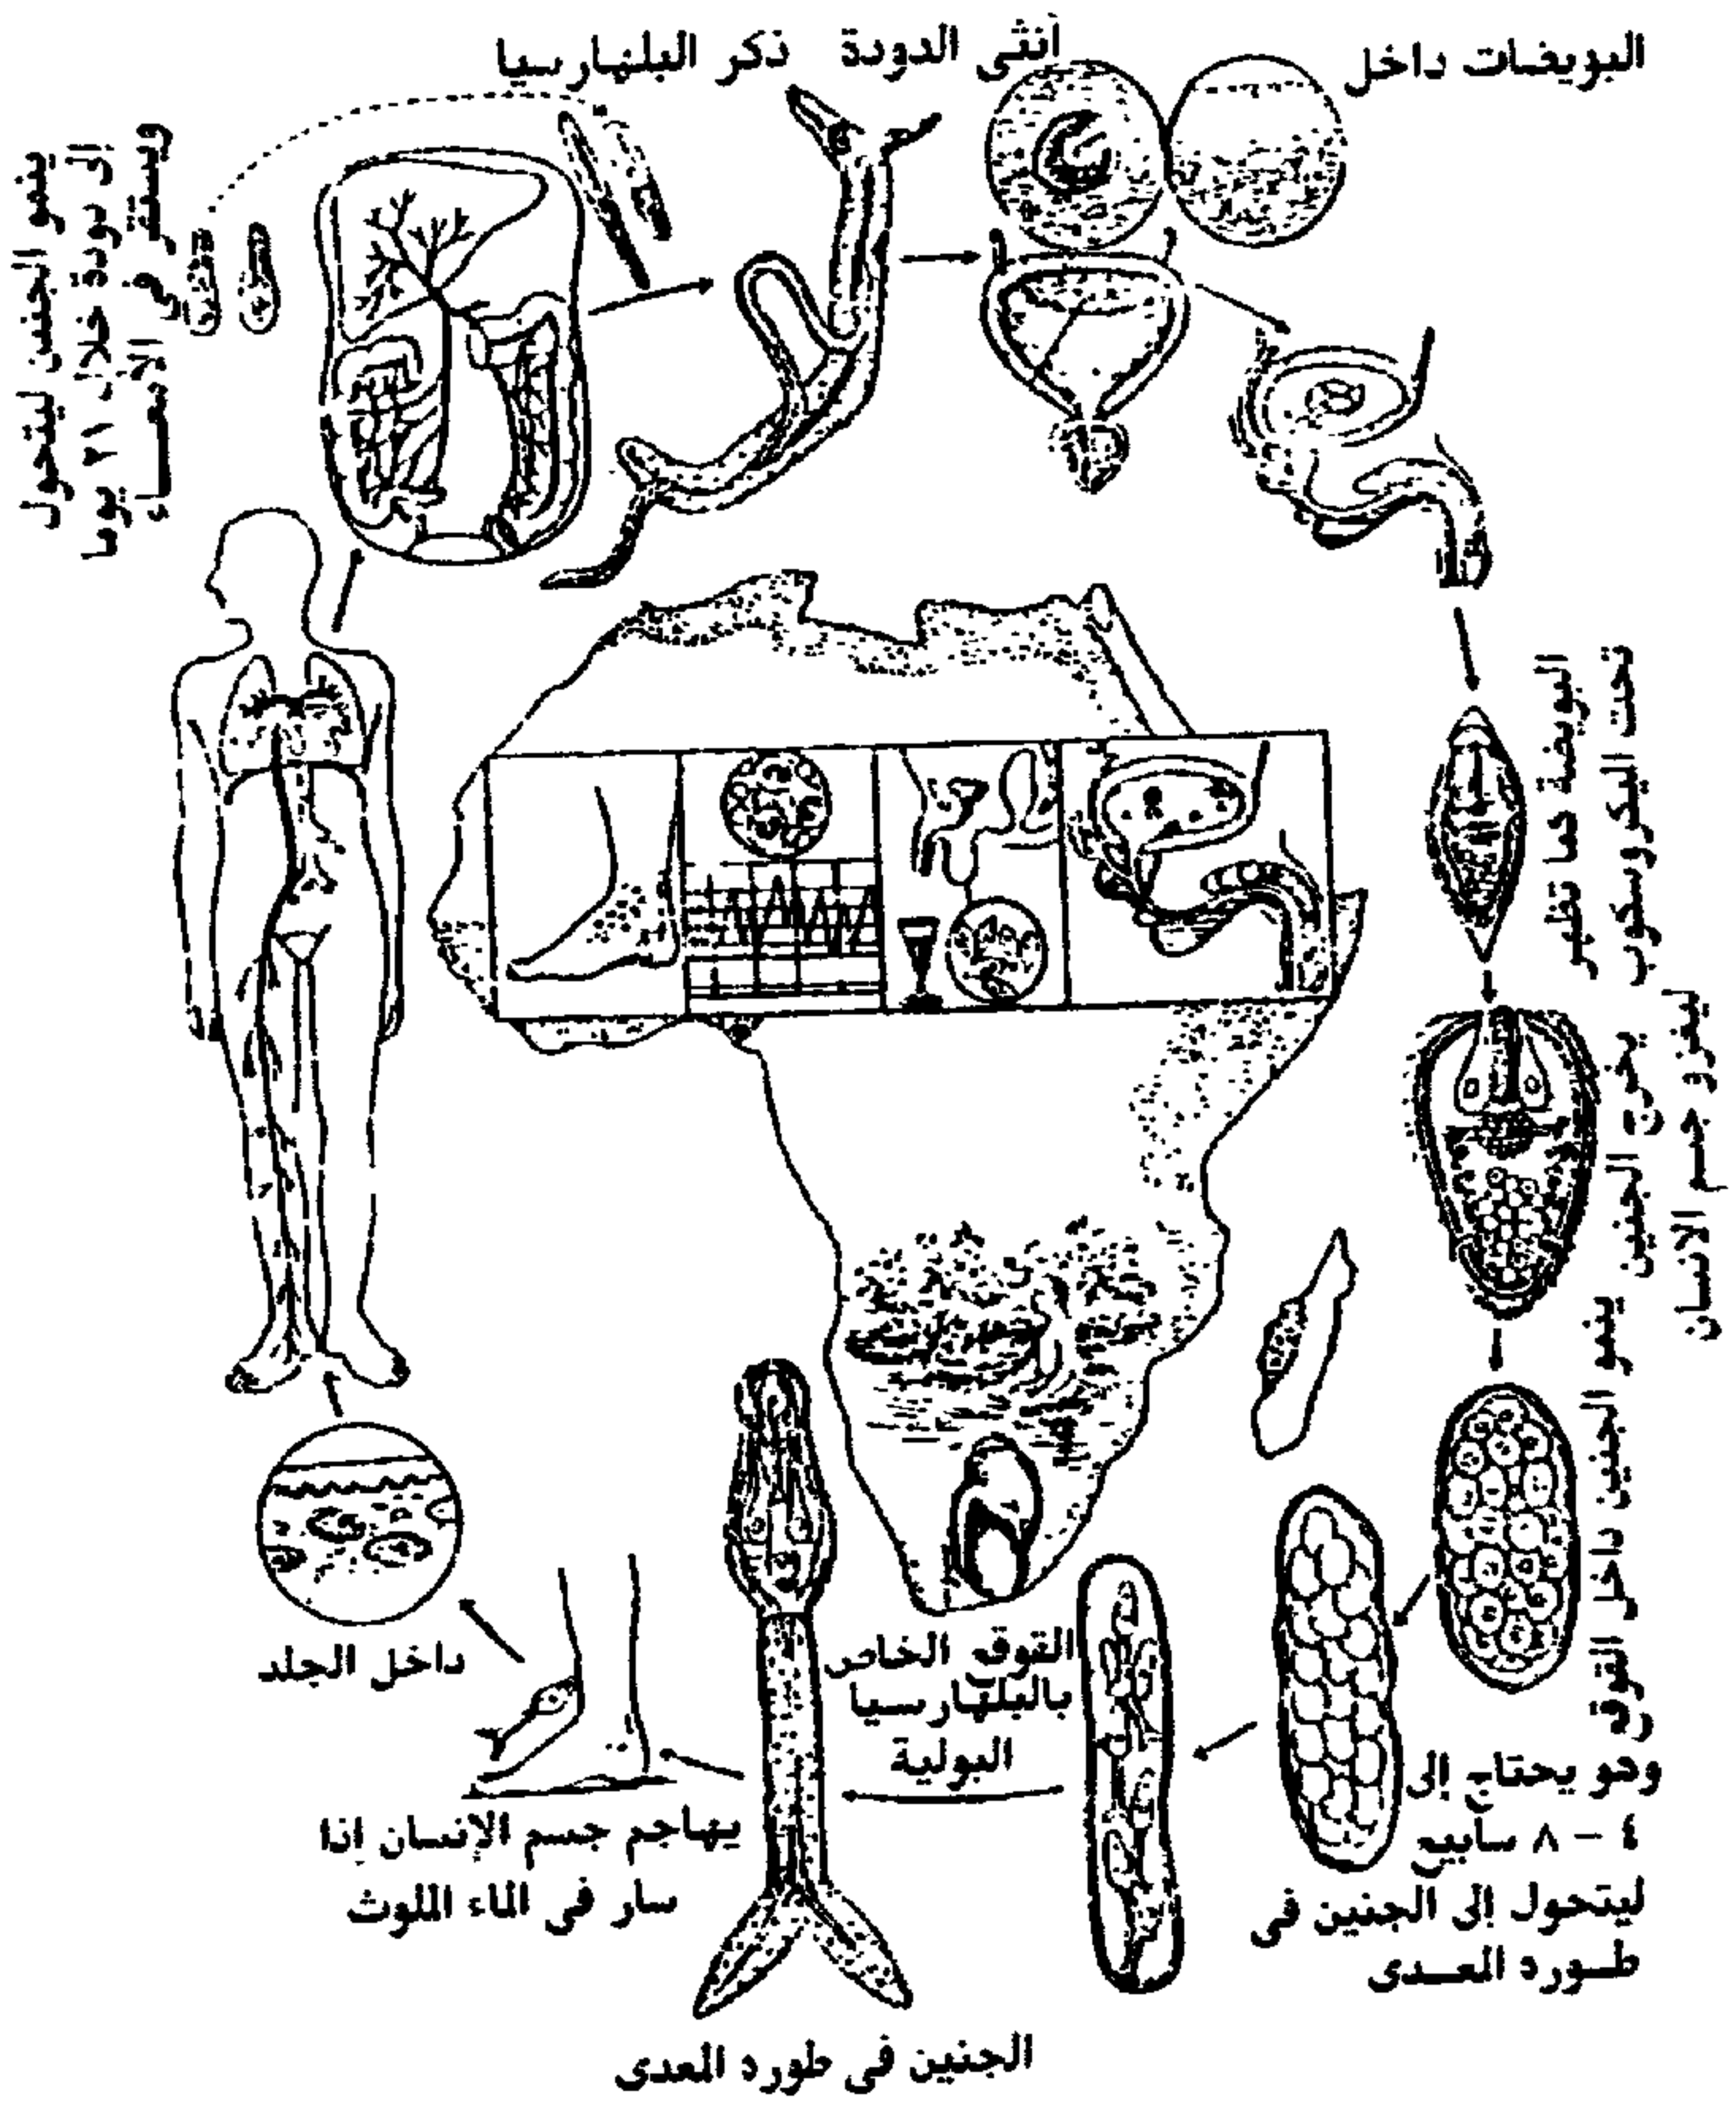 البويضات داخل
أنثى الدودة
ذكر البلهارسيا
ينمو الجنين ليتحول
إلى دودة خلال ٢١ يوما
فى الأمعاء
البويضة كما تظهر
تحت الميكروسكوب
يخرج الجنين
ليغزو جسم الانسان
ينمو الجنين داخل القوقع
وهو يحتاج إلى
٤ - ٨ سابيع
ليتحول إلى الجنين فى
طوره المعدى
القوقع الخاص
بالبلهارسيا
البولية
الجنين فى طوره المعدى
يهاجم جسم الإنسان إذا
سار فى الماء الملوث
داخل الجلد